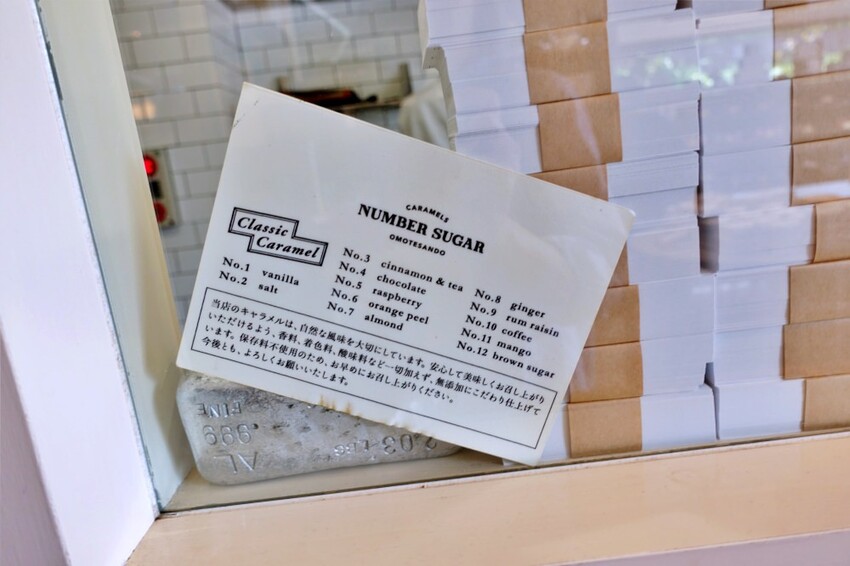 CARAMELS
NUMBER SUGAR
OMOTESANDO
Classic
Caramel
No.1 vanilla
No.2 salt
No.3 cinnamon & tea
No.4 chocolate
No.5 raspberry
No.6 orange peel
No.7 almond
No.8 ginger
No.9 rum raisin
No.10 coffee
No.11 mango
No.12 brown sugar
当店のキャラメルは、自然な風味を大切にしています。安心して美味しくお召し上がり
いただけるよう、香料、着色料、酸味料など一切加えず、無添加にこだわり仕上げて
います。保存料不使用のため、お早めにお召し上がりください。
今後とも、よろしくお願いいたします。
AL
.999
FINE
2.03 LBS